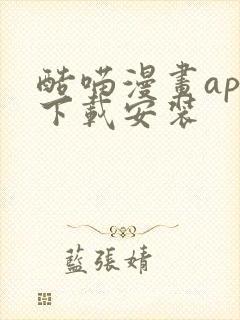 酷喵漫畫ap
下載安裝
藍張婧